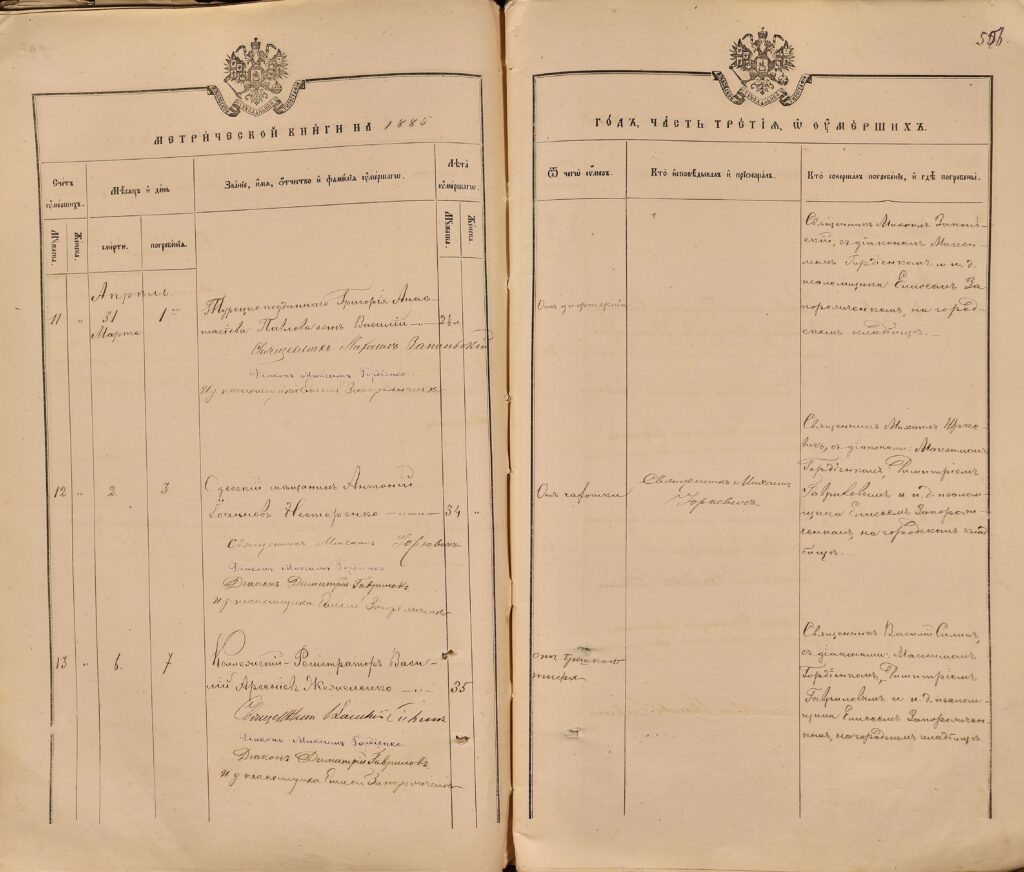 556.
МЕТРИ́ЧЕСКОЙ КНИ́ГИ НА 1885
ГО́ДЪ, ЧА́СТЬ ТРЕ́ТІЯ, Ѡ ОУМЕ́РШИХЪ.
Счетъ оумершихъ.
Мѣсяцъ и день
Зва́ніе, и́мя, ѻ҆́тчество и фами́лія оуме́ршагѡ.
Лѣта оуме́ршагѡ.
Мужеска.
Женска.
сме́рти.
погребе́нія.
Мужеска.
Женска.
Ѿ чегѡ̀ оу́меръ.
Кто̀ и҆сповѣ́дывалъ и прїѡбща́лъ.
Кто̀ соверша́лъ погребе́нїе, и гдѣ̀ погребены̀.
Апрѣль
11
"
31
Марта
1го
Турецко подданнаго Григорія Анас-
тасіева Павлова сынъ Василій
2½
Священникъ Михаилъ Запольскій
Діаконъ Максимъ Гордіенко
И д псаломщика Елисей Запорожченко
Отъ дифтерита
Священникъ Михаилъ Заполь-
скій, съ діакономъ Макси-
момъ Гордіенкомъ и и. д.
псаломщика Елисеемъ За-
порожченкомъ, на город-
скомъ кладбищѣ.
12
"
2
3
Одесскій мѣщанинъ Антоній
Іоанновъ Нестеренко
34
"
Священникъ Михаилъ Юркевичъ
Діаконъ Максимъ Гордіенко
Діаконъ Димитрій Гавриловъ
И д псаломщика Елисей Запорожченко
Отъ чахотки
Священникъ Михаилъ
Юркевичъ
Священникъ Михаилъ Юрке-
вичъ, съ діаконами: Максимомъ
Гордіенкомъ, Димитріемъ
Гавриловымъ и и. д. псалом-
щика Елисеемъ Запорож-
ченкомъ, на городскомъ клад-
бищѣ.
13
"
6
7
Коллежскій Регистраторъ Васи-
лій Арсеніевъ
35
Священникъ Василій Силинъ
Діаконъ Максимъ Гордіенко
Діаконъ Димитрій Гавриловъ
И д псаломщика Елисей Запорожченко
отъ брюшного
тифа
Священникъ Василій Силинъ,
съ діаконами Максимомъ
Гордіенкомъ, Димитріемъ
Гавриловымъ и и. д. псалом-
щика Елисеемъ Запорожчен-
комъ, на городскомъ кладбищѣ